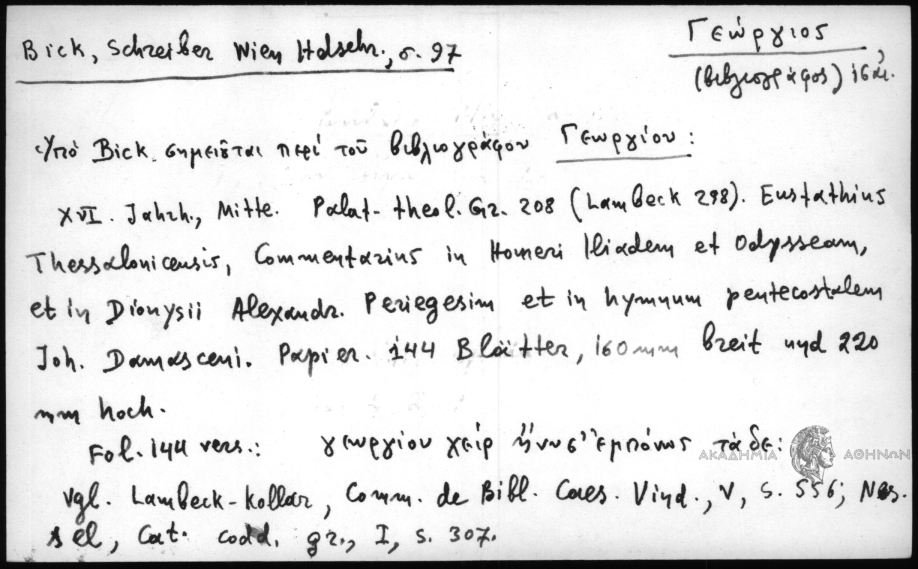 Bick, Schreiber Wien Hdschr., σ. 97
Γεώργιος
(βιβλιογράφος) ις´ αἰ.
Ὑπὸ Bick σημειοῦται περὶ τοῦ βιβλιογράφου Γεωργίου:
XVI. Jahrh., Mitte. Palat. theol. Gr. 208 (Lambeck 298). Eustathius
Thessalonicensis, Commentarius in Homeri Iliadem et Odysseam,
et in Dionysii Alexandr. Periegesim et in hymnum pentecostalem
Joh. Damasceni. Papier. 144 Blätter, 160 mm breit und 220
mm hoch.
Fol. 144 vers.: γεωργίου χείρ ἤνυσ' ἐμπόνως τάδε:
vgl. Lambeck-Kollar, Comm. de Bibl. Caes. Vind., V, S. 556; Nes-
sel, Cat. codd. gr., I, S. 307.
ΑΚΑΔΗΜΙΑ ΑΘΗΝΩΝ